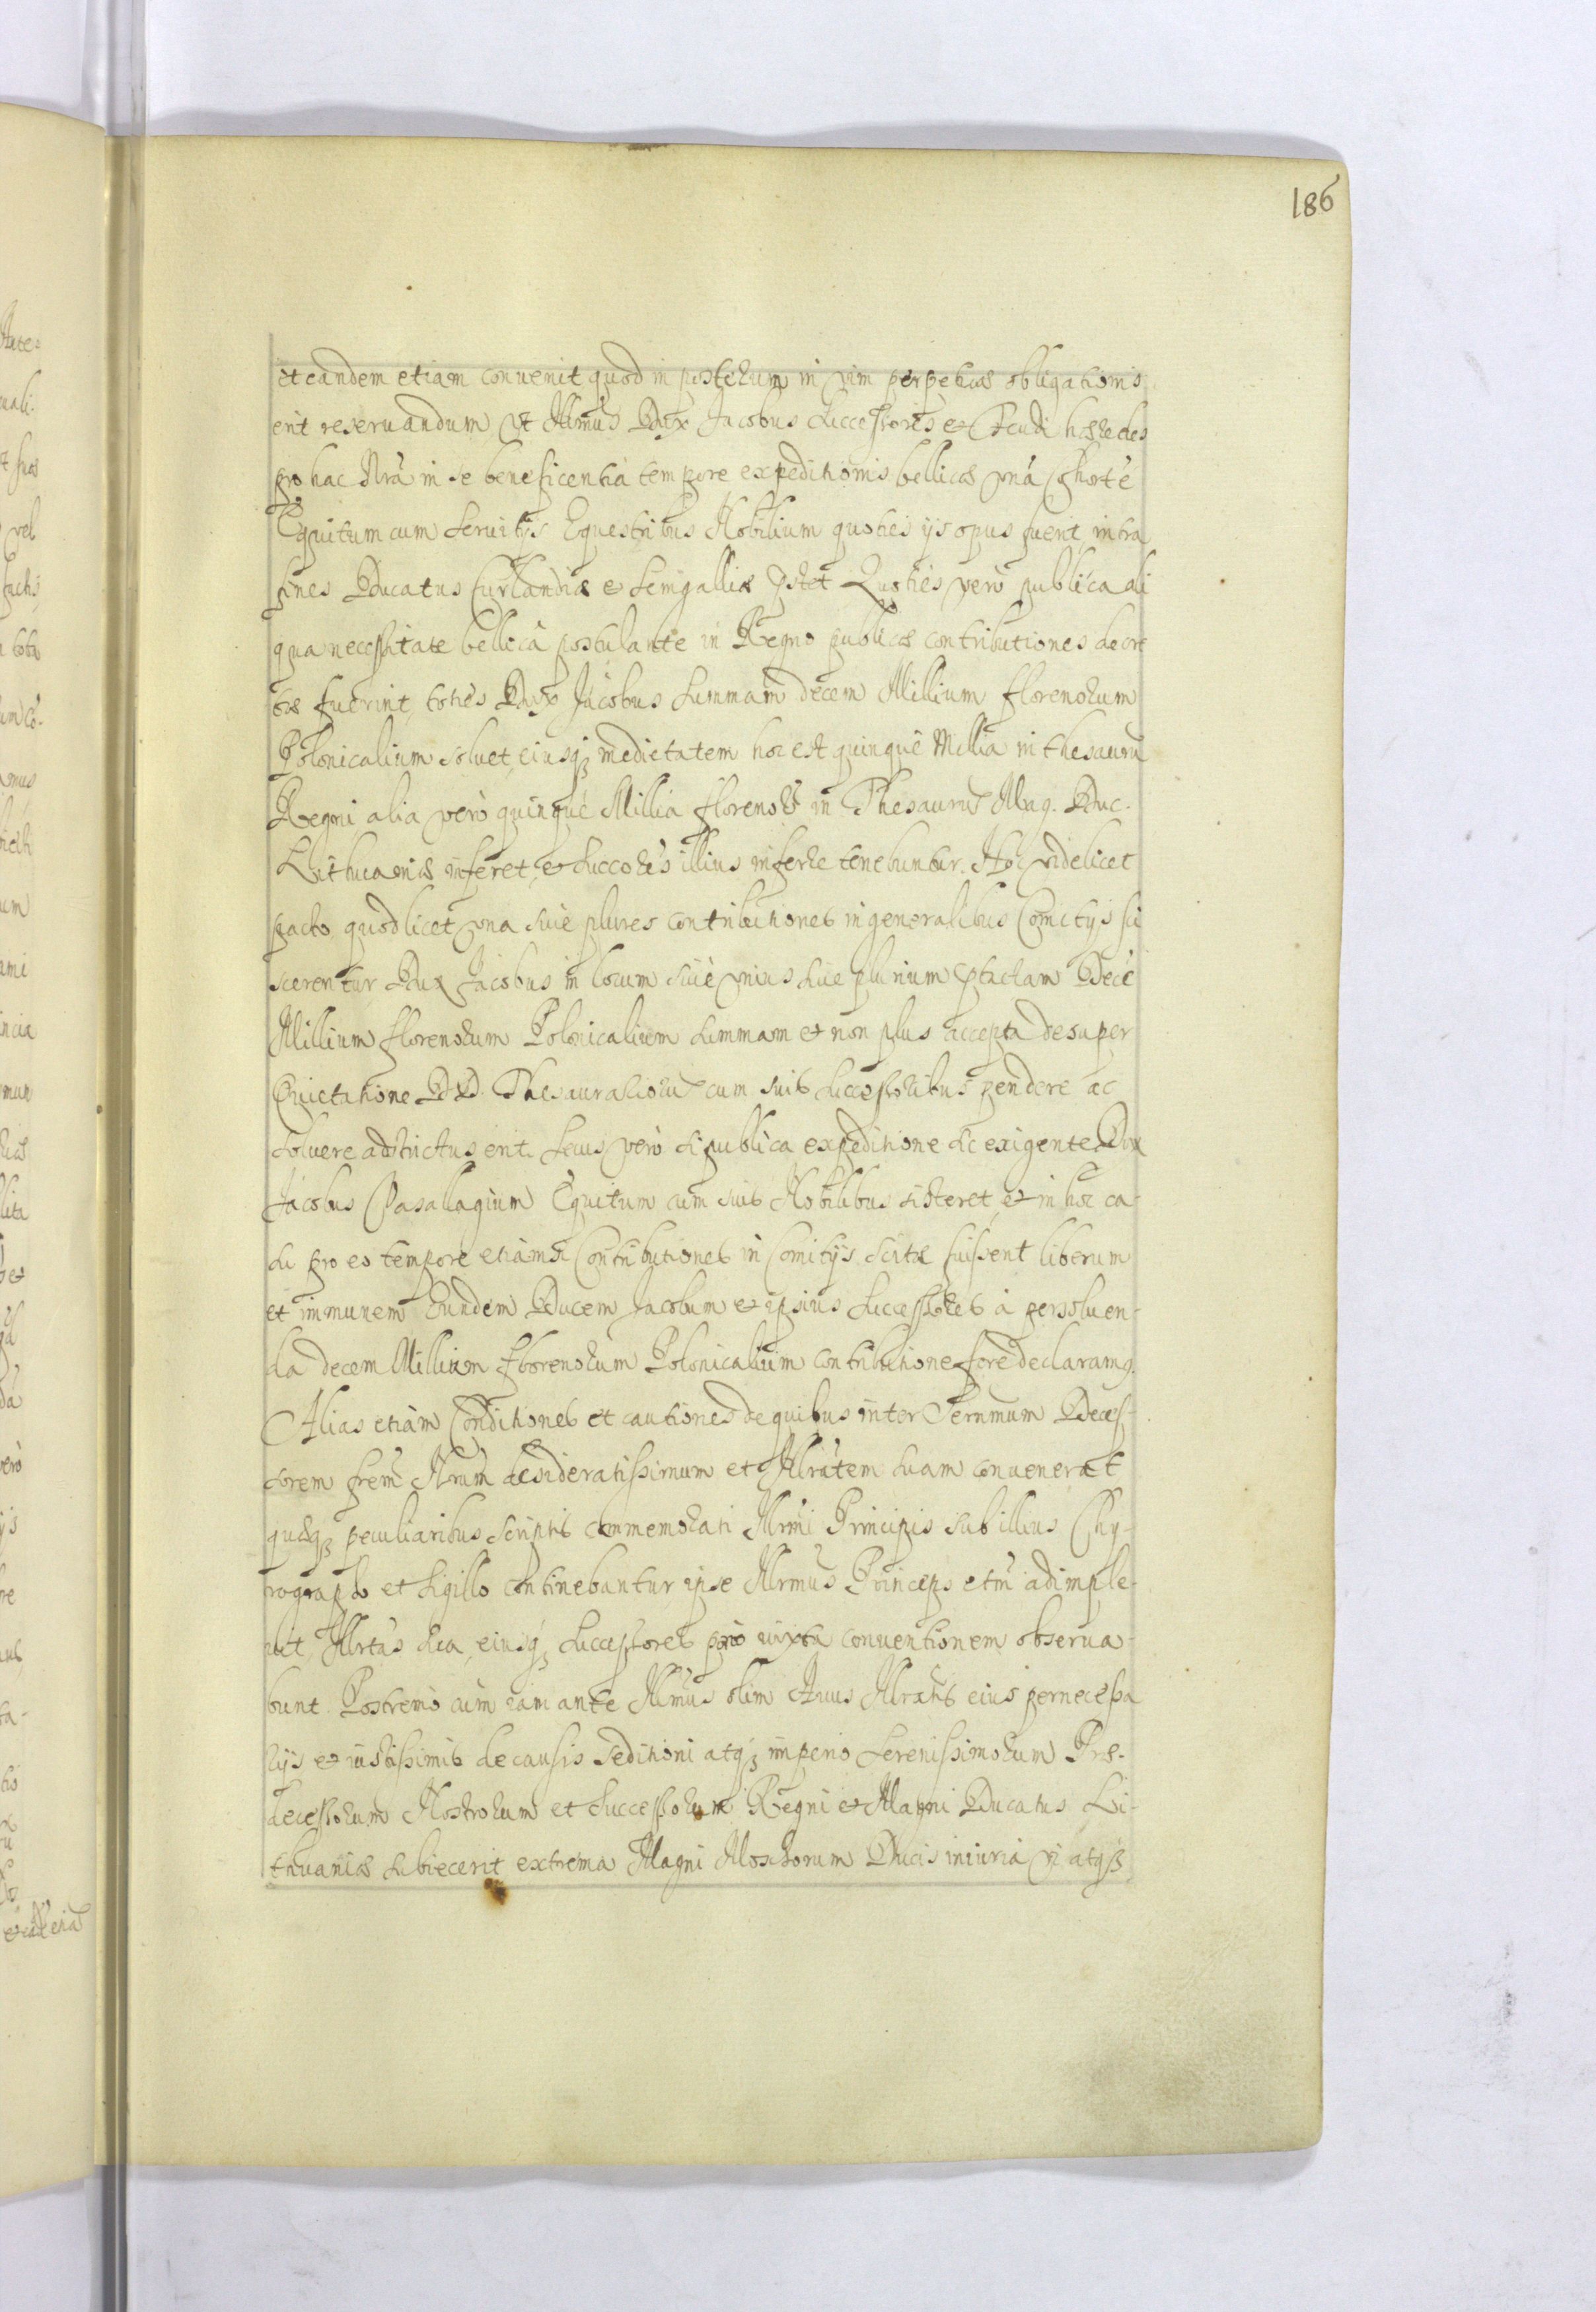 186
et eandem etiam convenit quod in posterum in vim perpetuæ obligationis
erit reservandum Vt Illmus Dux Jacobus Successores et Feudi hæredes
pro hac Nrã in se beneficentia tempore expeditionis bellicæ vnã Cohorte
Equitum cum Servitijs Equestribus Nobilium quoties ijs opus fuerit intra
fines Ducatus Curlandiæ et Semigalliæ Quoties vero publica ali
qua necessitate bellicà postulante in Regno publicæ contributiones decre
tæ fuerint, toties Dux Jacobus Summam decem Millium florenorum
Polonicalium solvet, eiusq medietatem hoc est quinque Millia in thesaurũ
Regni alia verò quinque Millia florenorũ in Thesaurũ Mag. Duc.
Lithuaniæ inferet, et Succores illius inferre tenebuntur. Hoc videlicet
pacto, quod licet vna sive plures contributiones in generalibus Comitijs sci
scerentur Dux Jacobus in locum sive vnius sive plurium Decẽ
Millium florenorum Polonicalium Summam et non plus accepta desuper
Quietatione D.D. Thesaurariorũ cum suis Successoribus pendere ac
solvere adstrictus erit. Secus verò si publica expeditione sic exigente Dux
Jacobus Vasallagium Equitum cum suis Nobilibus sisteret, et in hoc ca-
su pro eo tempore etiamsi Contributiones in Comitijs Scitæ fuissent liberum
et immunem Eundem Ducem Jacobum et ipsius Successores à persoluen-
da decem Millium florenorum Polonicalium contributione fore declaramg.
Alias etiam Conditiones et cautiones de quibus inter Sernmum Deces-
sorem frem Nrum desideratissimum et Illrtem suam convenerat
quæq peculiaribus Scriptis commemorati Illrmi Principis Sub illius Chy-
rographo et Sigillo continebantur, ipse Illrmus Princeps etm adimple-
bit, Illrtas sua, eiusq Successores iuxta conventionem observa-
bunt. Postremò cum iam ante Illmus olim Avus Illratis eius pernecessa
rijs et iustissimis de causis Seditioni atq imperio Serenissimorum Præ-
decessorum Nostrorum et Successorum Regni et Magni Ducatus Li-
thuaniæ subiecerit extrema Magni Moschorum Ducis iniuria vi atq